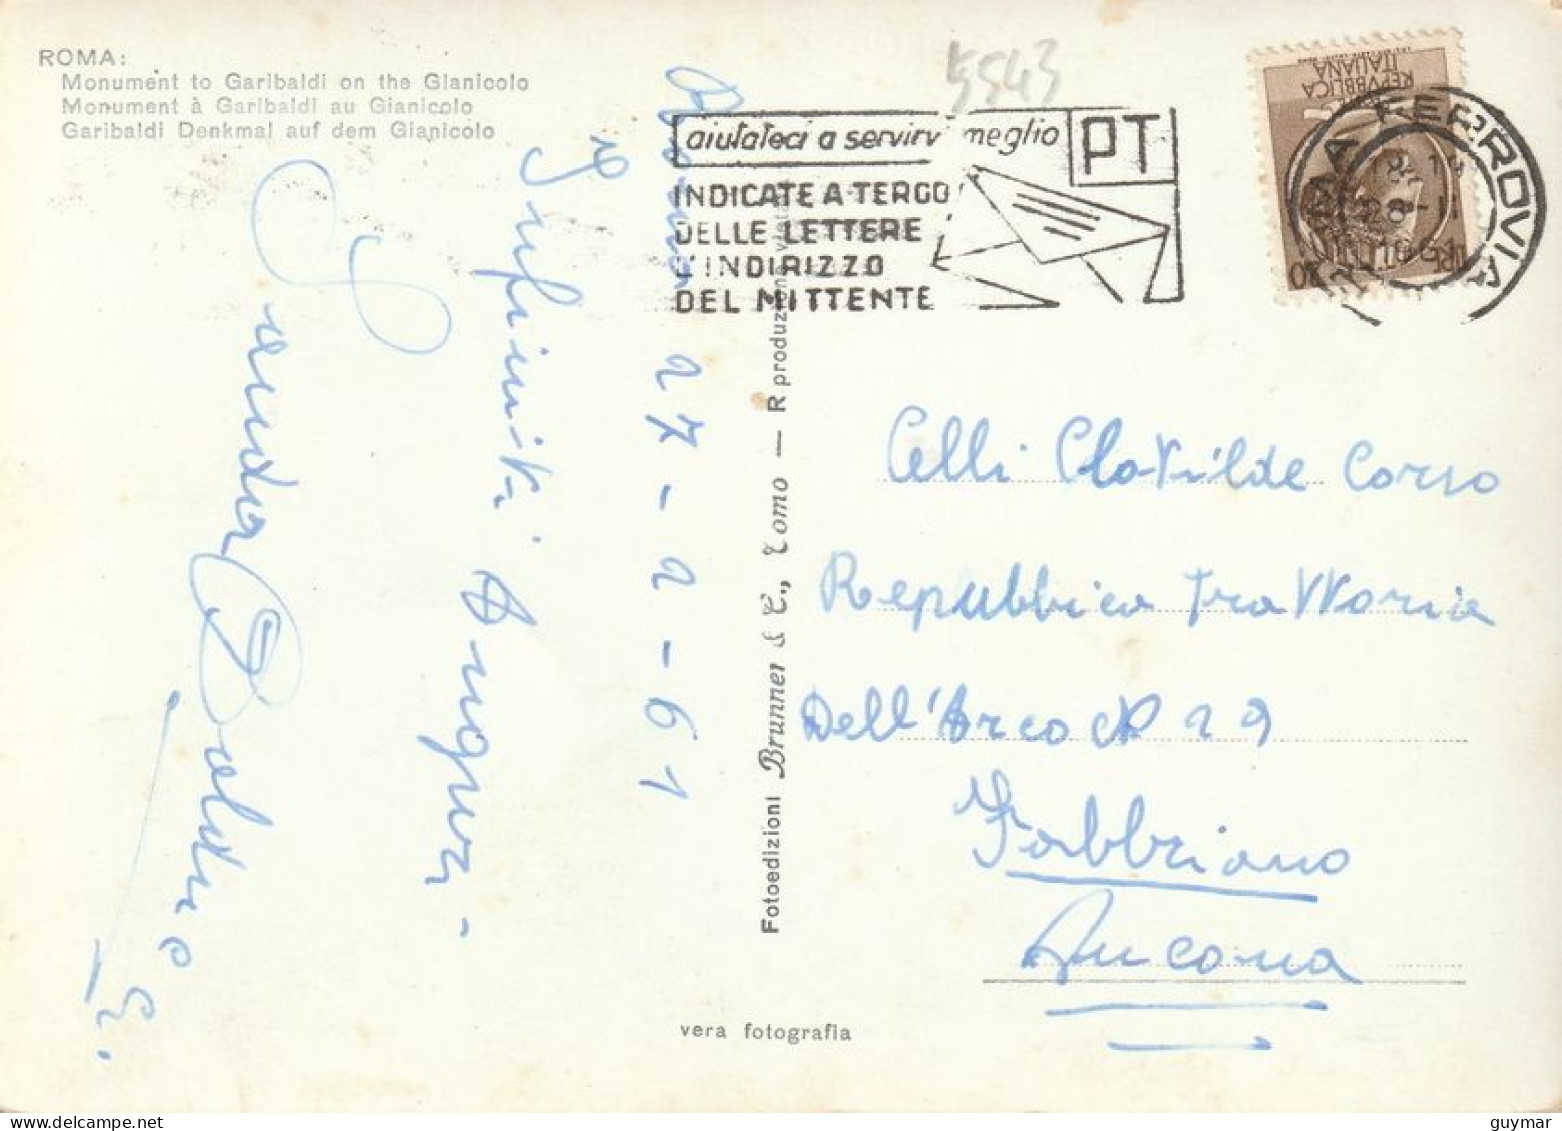 ROMA:
Monument to Garibaldi on the Gianicolo
Monument à Garibaldi au Gianicolo
Garibaldi Denkmal auf dem Gianicolo
5543
aiutateci a servirvi meglio
PT
INDICATE A TERGO
DELLE LETTERE
L'INDIRIZZO
DEL MITTENTE
REPVBBLICA
ITALIANA
FERROVIA
1961
Roma 27-2-61
Infiniti Auguri
Celli Clotilde Corso
Repubblica Trattoria
Dell'Arco N 29
Fabbriano
Ancona
Fotoedizioni Brunner & C., Como — Riproduzione vietata
vera fotografia
guymar